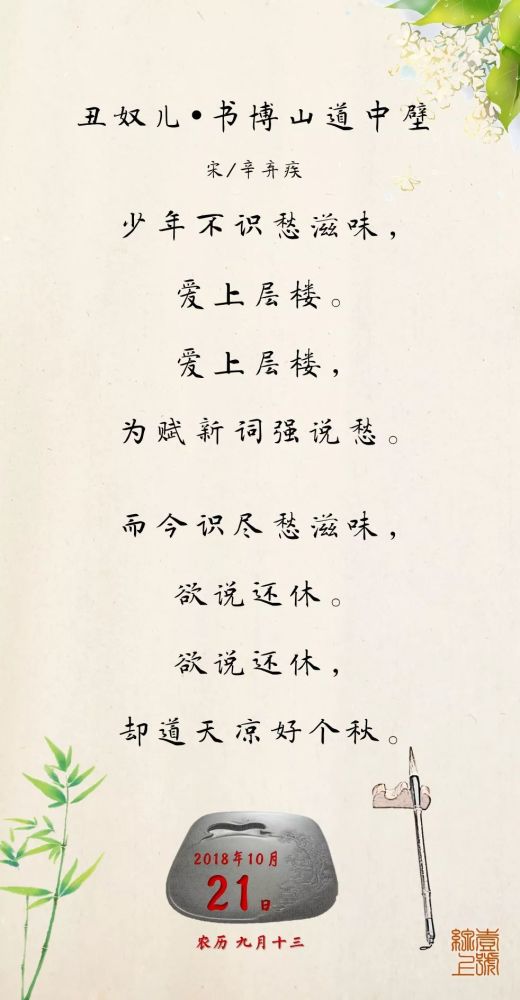 丑奴儿•书博山道中壁
宋/辛弃疾
少年不识愁滋味，
爱上层楼。
爱上层楼，
为赋新词强说愁。
而今识尽愁滋味，
欲说还休。
欲说还休，
却道天凉好个秋。
2018年10月
21日
农历 九月十三